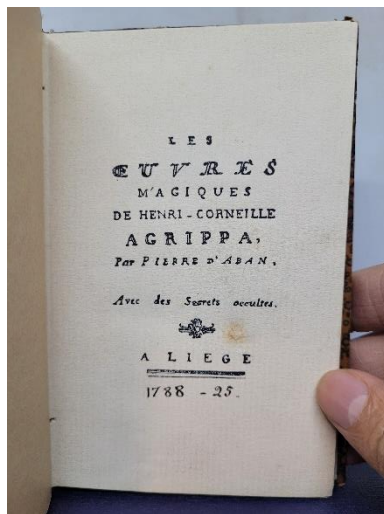 LES
ŒUVRES
MAGIQUES
DE HENRI-CORNEILLE
AGRIPPA,
Par PIERRE D'ABAN,
Avec des Secrets occultes.
A LIEGE
1788 - 25.